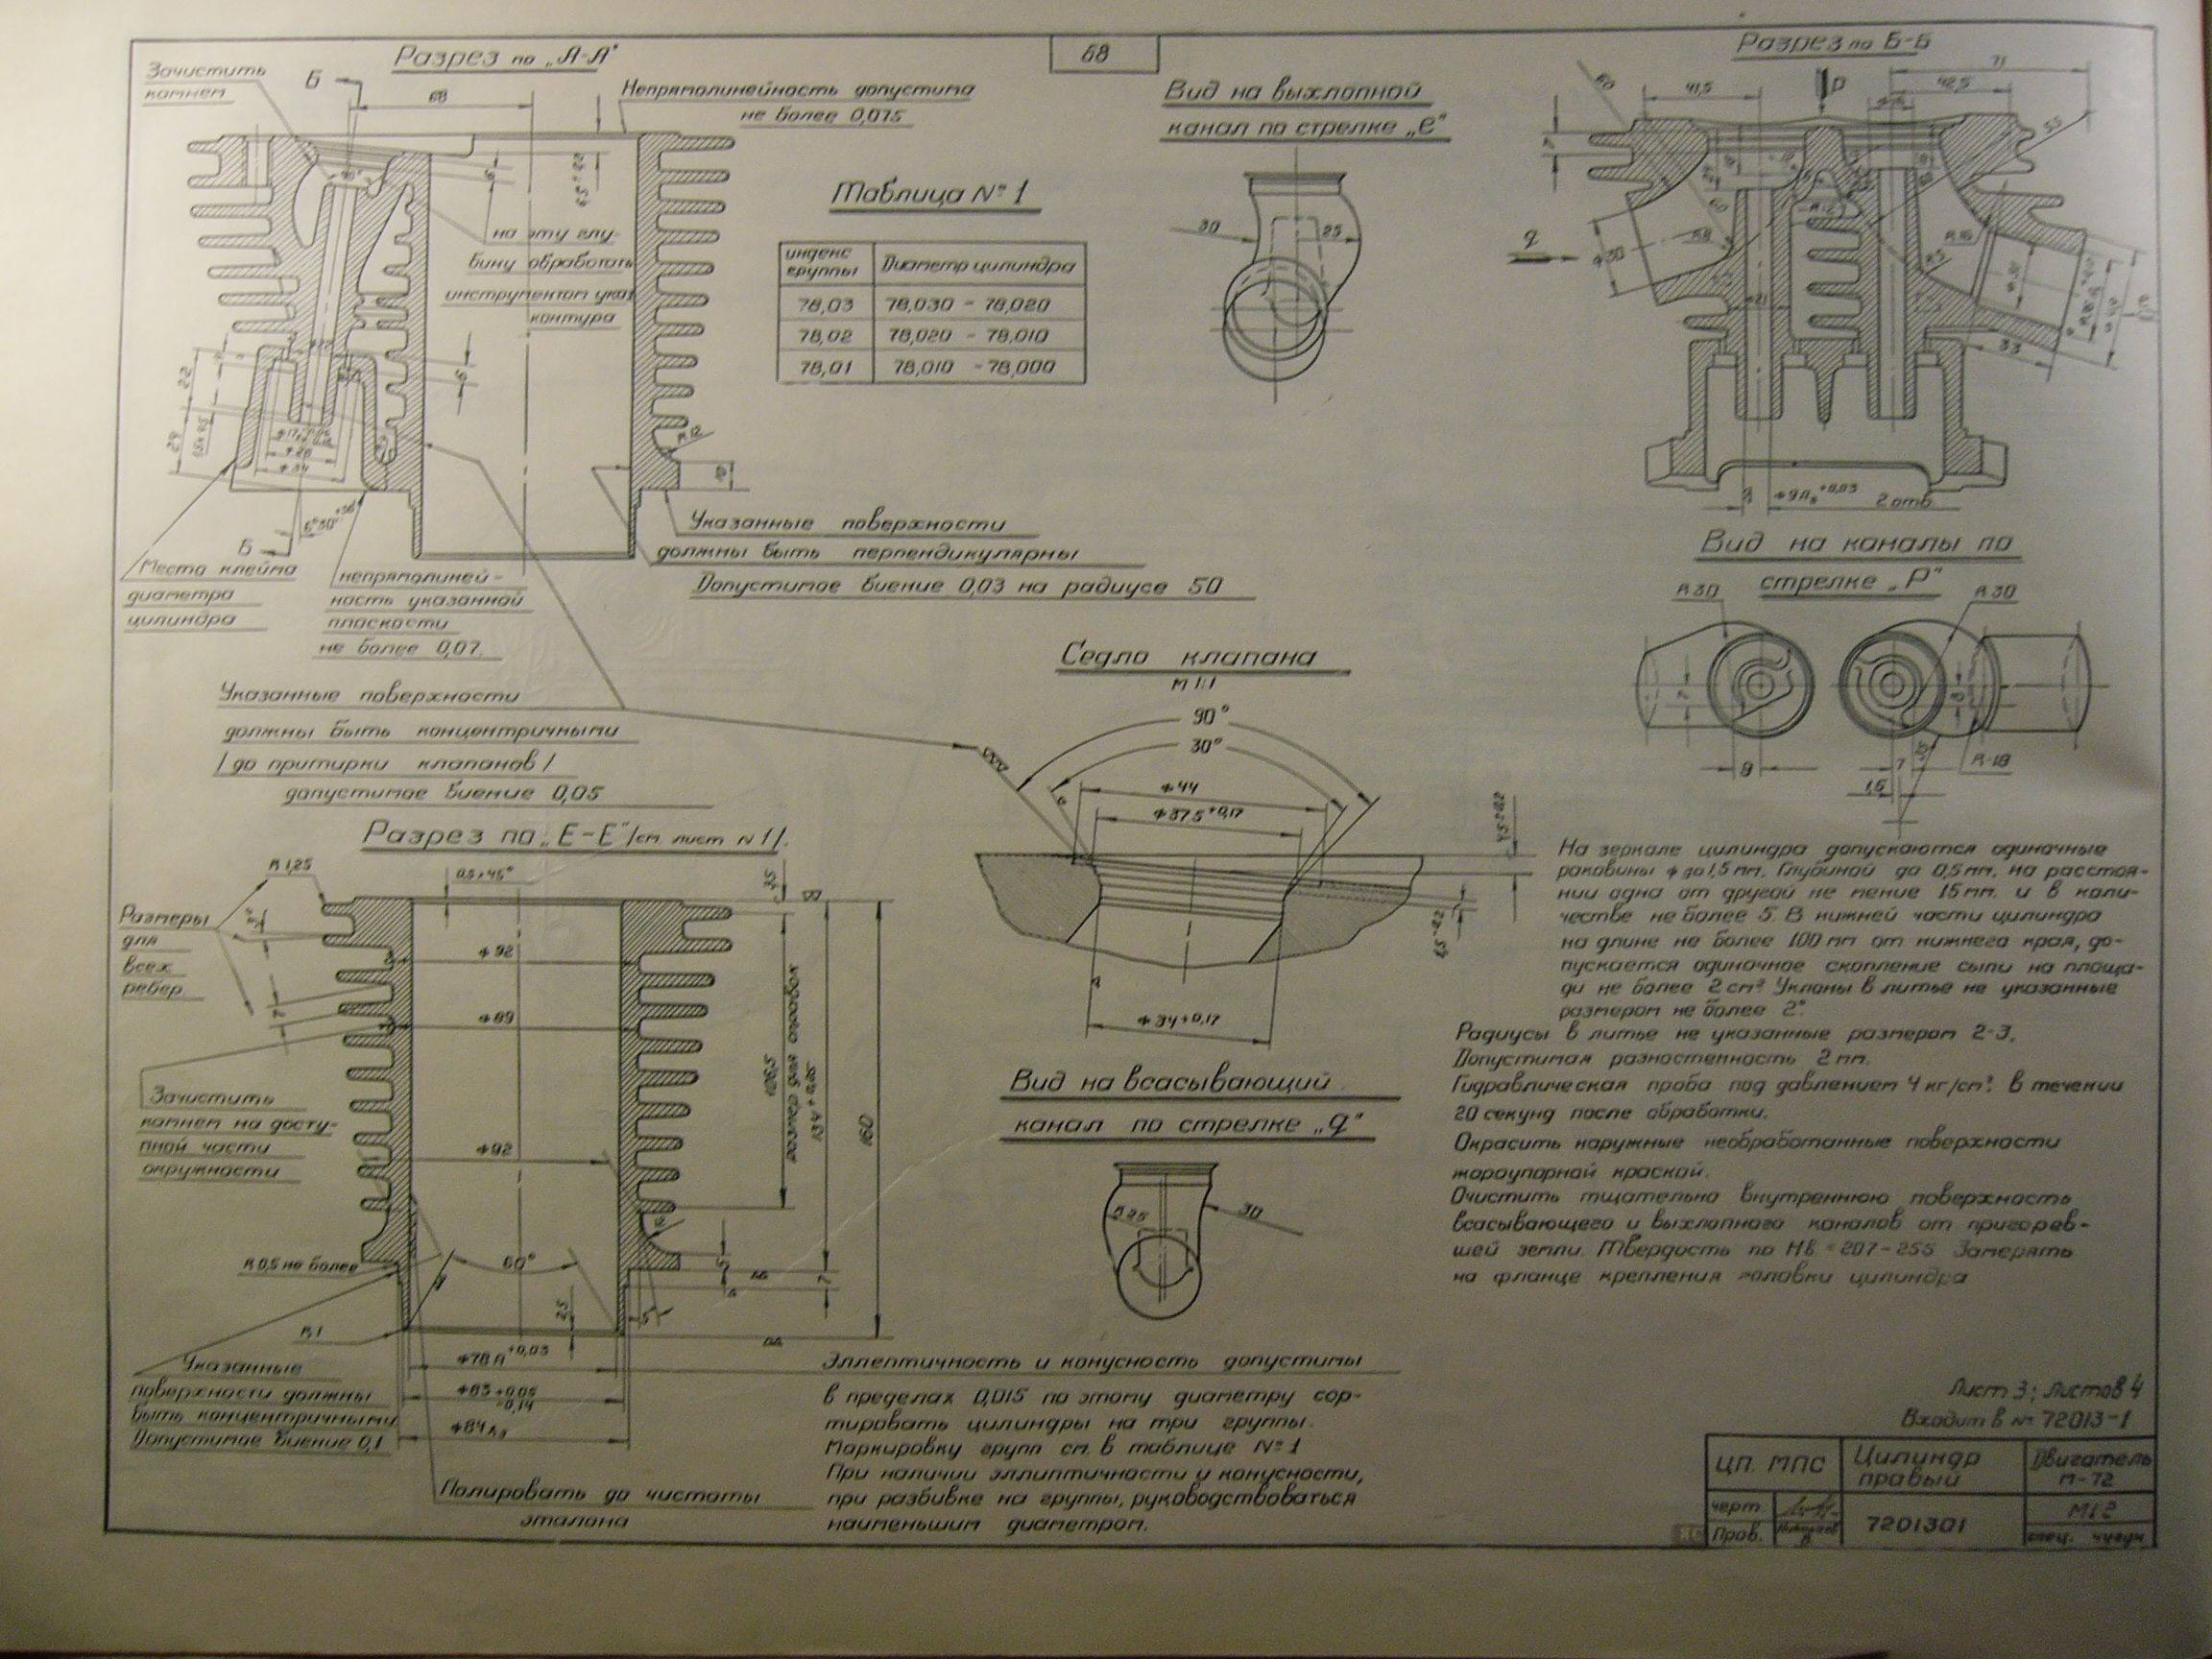 68
Разрез по „А-А"
Зачистить
камнем
Б
68
Непрямолинейность допустима
не более 0,075
на эту глу-
бину обработать
инструментом указ.
контура
R12
22
24
1,5×45°
ф20
ф34
6°30'
Б
Место клейма
диаметра
цилиндра
непрямолиней-
ность указанной
плоскости
не более 0,07.
Указанные поверхности
должны быть перпендикулярны
Допустимое биение 0,03 на радиусе 50
Таблица №1
индекс группы Диаметр цилиндра
78,03 78,030 - 78,020
78,02 78,020 - 78,010
78,01 78,010 - 78,000
Вид на выхлопной
канал по стрелке „е"
30
25
Разрез по Б-Б
71
41,5
Р
42,5
55
60
R12
q
ф30
33
ф9А₃⁺⁰·⁰³ 2 отв.
Вид на каналы по
стрелке „Р"
R30
R30
7
9
7
1,5
R18
Указанные поверхности
должны быть концентричными
/до притирки клапанов/
допустимое биение 0,05
Седло клапана
М 1:1
90°
30°
ф44
ф37,5⁺⁰·¹⁷
ф34⁺⁰·¹⁷
Разрез по „Е-Е" /см. лист №1/.
R1,25
0,5×45°
3,5
Размеры
для
всех
ребер.
ф92
ф89
ф92
126,5
размер для опоковок
160
Зачистить
камнем на досту-
пной части
окружности
R0,5 не более
60°
R1
25
12
5
7
ф78А⁺⁰·⁰³
ф83
ф84
Указанные
поверхности должны
быть концентричными
Допустимое биение 0,1
Полировать до чистоты
эталона
Вид на всасывающий
канал по стрелке „q"
R25
30
Эллептичность и конусность допустимы
в пределах 0,015 по этому диаметру сор-
тировать цилиндры на три группы.
Маркировку групп см. в таблице №1
При наличии эллиптичности и конусности,
при разбивке на группы, руководствоваться
наименьшим диаметром.
На зеркале цилиндра допускаются одиночные
раковины ф до 1,5 мм. Глубиной до 0,5 мм. на расстоя-
нии одна от другой не менее 15 мм. и в коли-
честве не более 5. В нижней части цилиндра
на длине не более 100 мм от нижнего края, до-
пускается одиночное скопление сыпи на площа-
ди не более 2 см². Уклоны в литье не указанные
размером не более 2°.
Радиусы в литье не указанные размером 2-3.
Допустимая разностенность 2 мм.
Гидравлическая проба под давлением 4 кг/см². в течении
20 секунд после обработки.
Окрасить наружные необработанные поверхности
жароупорной краской.
Очистить тщательно внутреннюю поверхность
всасывающего и выхлопного каналов от пригорев-
шей земли. Твердость по Нв = 207-255 Замерять
на фланце крепления головки цилиндра
Лист 3; Листов 4
Входит в № 72013-1
ЦП МПС Цилиндр правый Двигатель М-72
черт.
Пров.
7201301
М1:2
спец. чугун